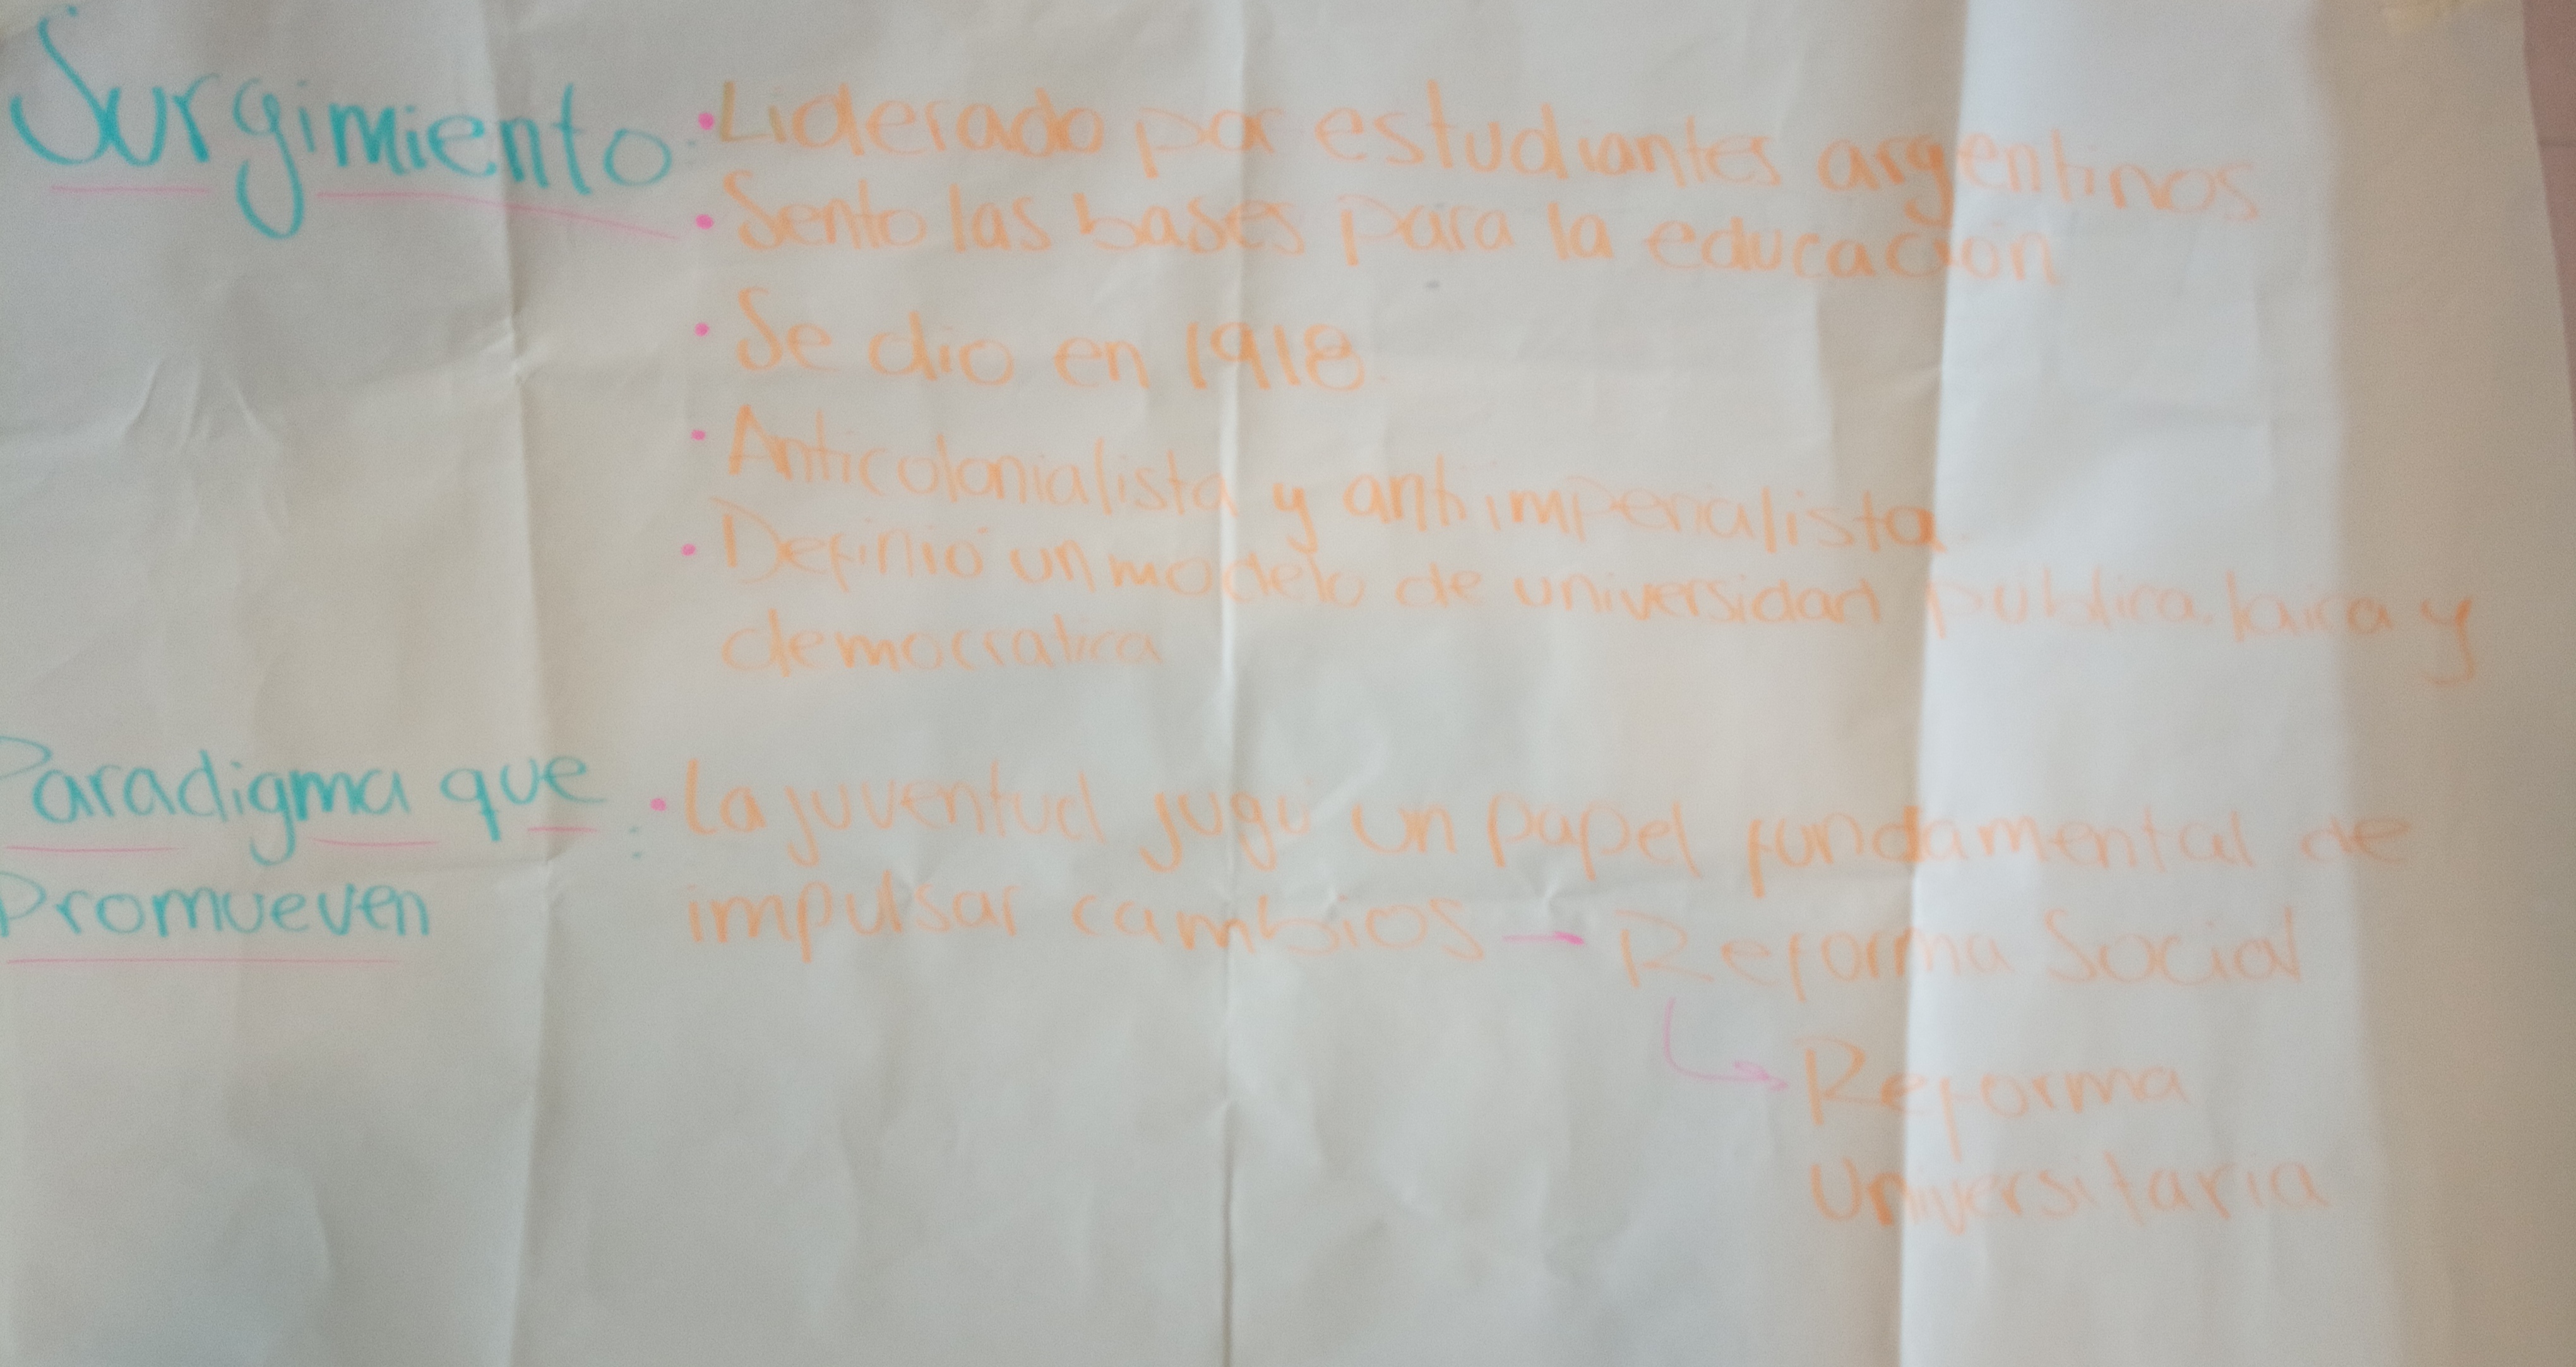 Surgimiento: • Liderado por estudiantes argentinos
• Sento las bases para la educación
• Se dio en 1918.
• Anticolonialista y antiimperialista
• Definió un modelo de universidad pública, laica y
democratica
Paradigma que : • La juventud jugó un papel fundamental de
Promueven impulsar cambios → Reforma Social
↳ Reforma
Universitaria